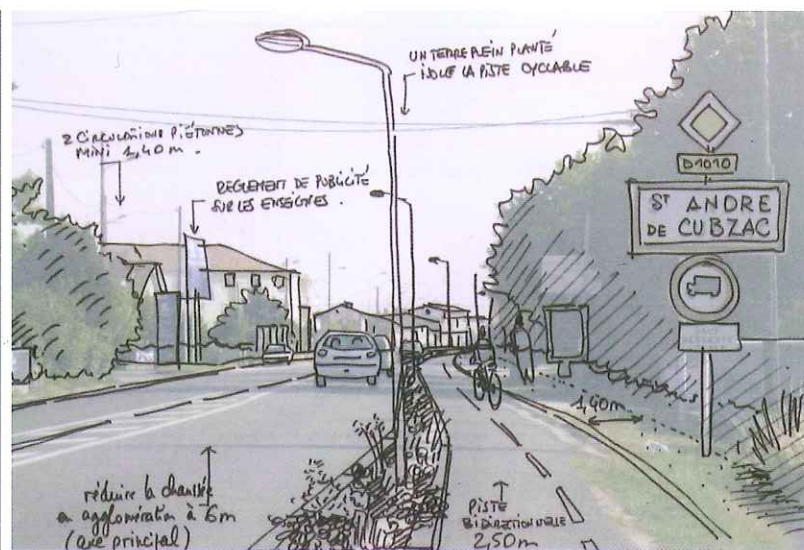 UN TERRE PLEIN PLANTÉ
ISOLE LA PISTE CYCLABLE
2 CIRCULATIONS PIÉTONNES
MINI 1,40 m.
REGLEMENT DE PUBLICITÉ
SUR LES ENSEIGNES.
D1010
ST ANDRE
DE CUBZAC
1,40m
réduire la chaussée
en agglomération à 6m
(axe principal)
PISTE
BIDIRECTIONNELLE
2,50m